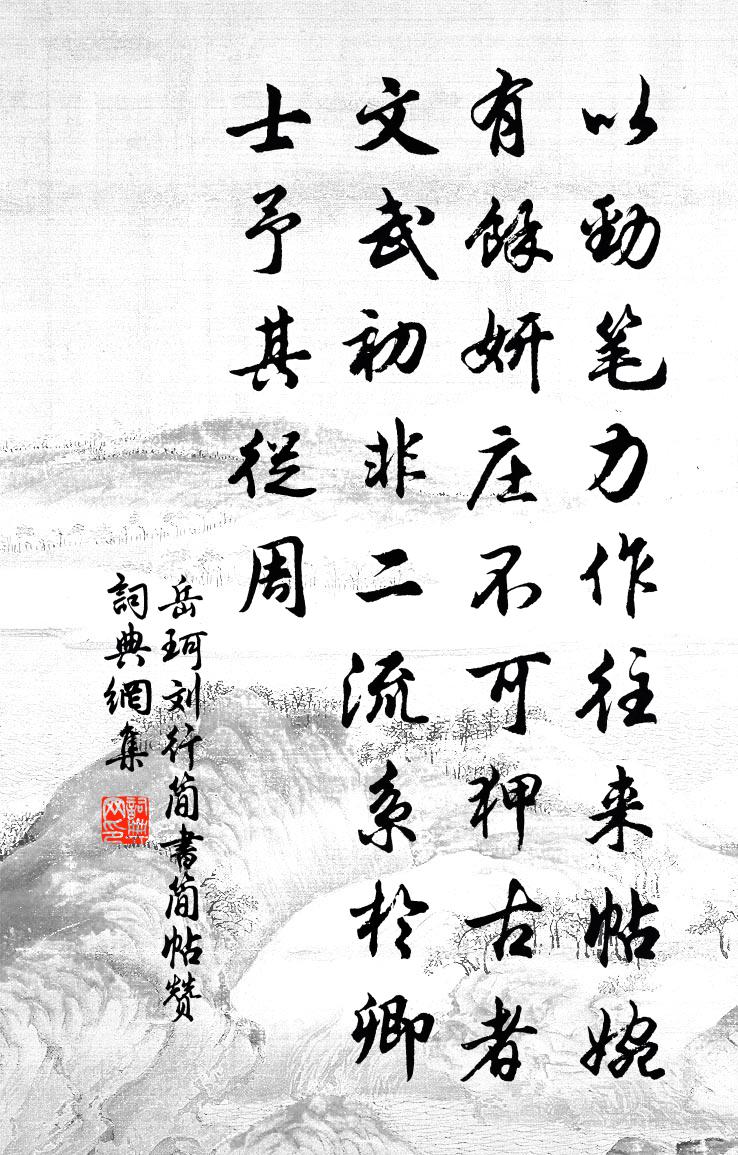 以勁笔力作往来帖婉
有餘妍庄不可狎古者
文武初非二流系於卿
士予其從周
岳珂刘行简書简帖赞
詞典網集
詞典網印